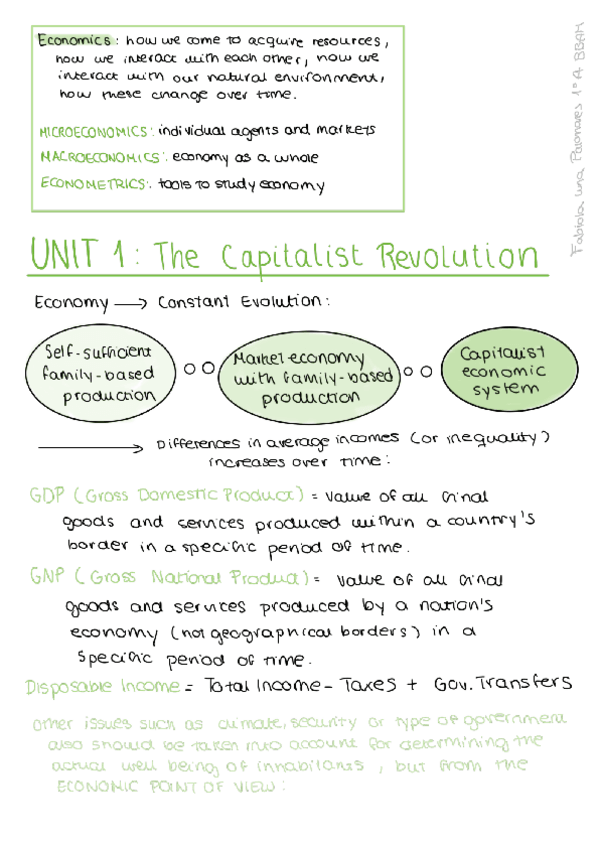 Economics: how we come to acquire resources,
how we interact with each other, how we
interact with our natural environment,
how these change over time.
MICROECONOMICS: individual agents and markets
MACROECONOMICS: economy as a whole
ECONOMETRICS: tools to study economy
UNIT 1: The Capitalist Revolution
Economy → Constant Evolution:
Self-sufficient
family-based
production
Market economy
with family-based
production
Capitalist
economic
system
→ Differences in average incomes (or inequality)
increases over time:
GDP (Gross Domestic Product) = Value of all final
goods and services produced within a country's
border in a specific period of time.
GNP (Gross National Product) = Value of all final
goods and services produced by a nation's
economy (not geographical borders) in a
specific period of time.
Disposable Income = Total Income - Taxes + Gov. Transfers
other issues such as climate, security or type of government
also should be taken into account for determining the
actual well being of inhabitants, but from the
ECONOMIC POINT OF VIEW:
Luna Palomares 1º A BBAM